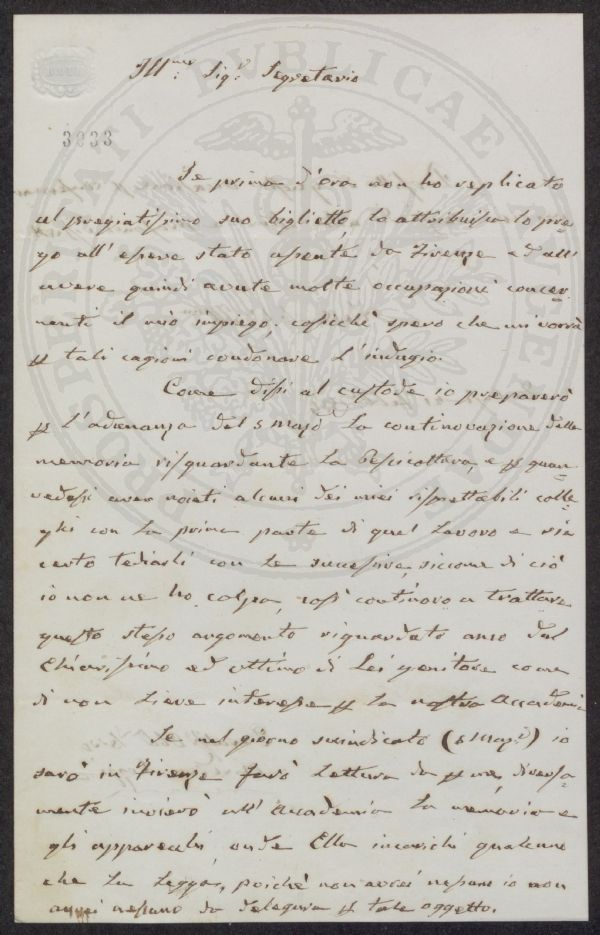 Ill.mo Sig.r Segretario
3033
Se prima d'ora non ho replicato
al pregiatissimo suo biglietto, lo attribuisca lo pre=
go all'essere stato assente da Firenze ed all'
avere quindi avute molte occupazioni concer=
nenti il mio impiego; cosicchè spero che mi vorrà
p tali cagioni condonare l'indugio.
Come dissi al custode io preparerò
p l'adunanza del 5 majo la continovazione della
memoria risguardante la Pescicoltura, e p quan
vedessi aver nojati alcuni dei miei rispettabili colle=
ghi con la prima parte di quel lavoro e sia
certo tediarli con le successive, siccome di ciò
io non ne ho colpa, così continovo a trattare
questo stesso argomento riguardato anco dal
Chiarissimo ed ottimo di Lei genitore come
di non lieve interesse p la nostra Accademia
Se nel giorno suindicato (5 Mag.o) io
sarò in Firenze farò lettura da p me, diversa=
mente invierò all'Accademia la memoria e
gli apparecchi onde Ella incarichi qualcuno
che la legga, poichè non avrei nessuno io non
avrei nessuno da delegare p tale oggetto.
PROSPERITATI PUBLICAE AUGENDAE